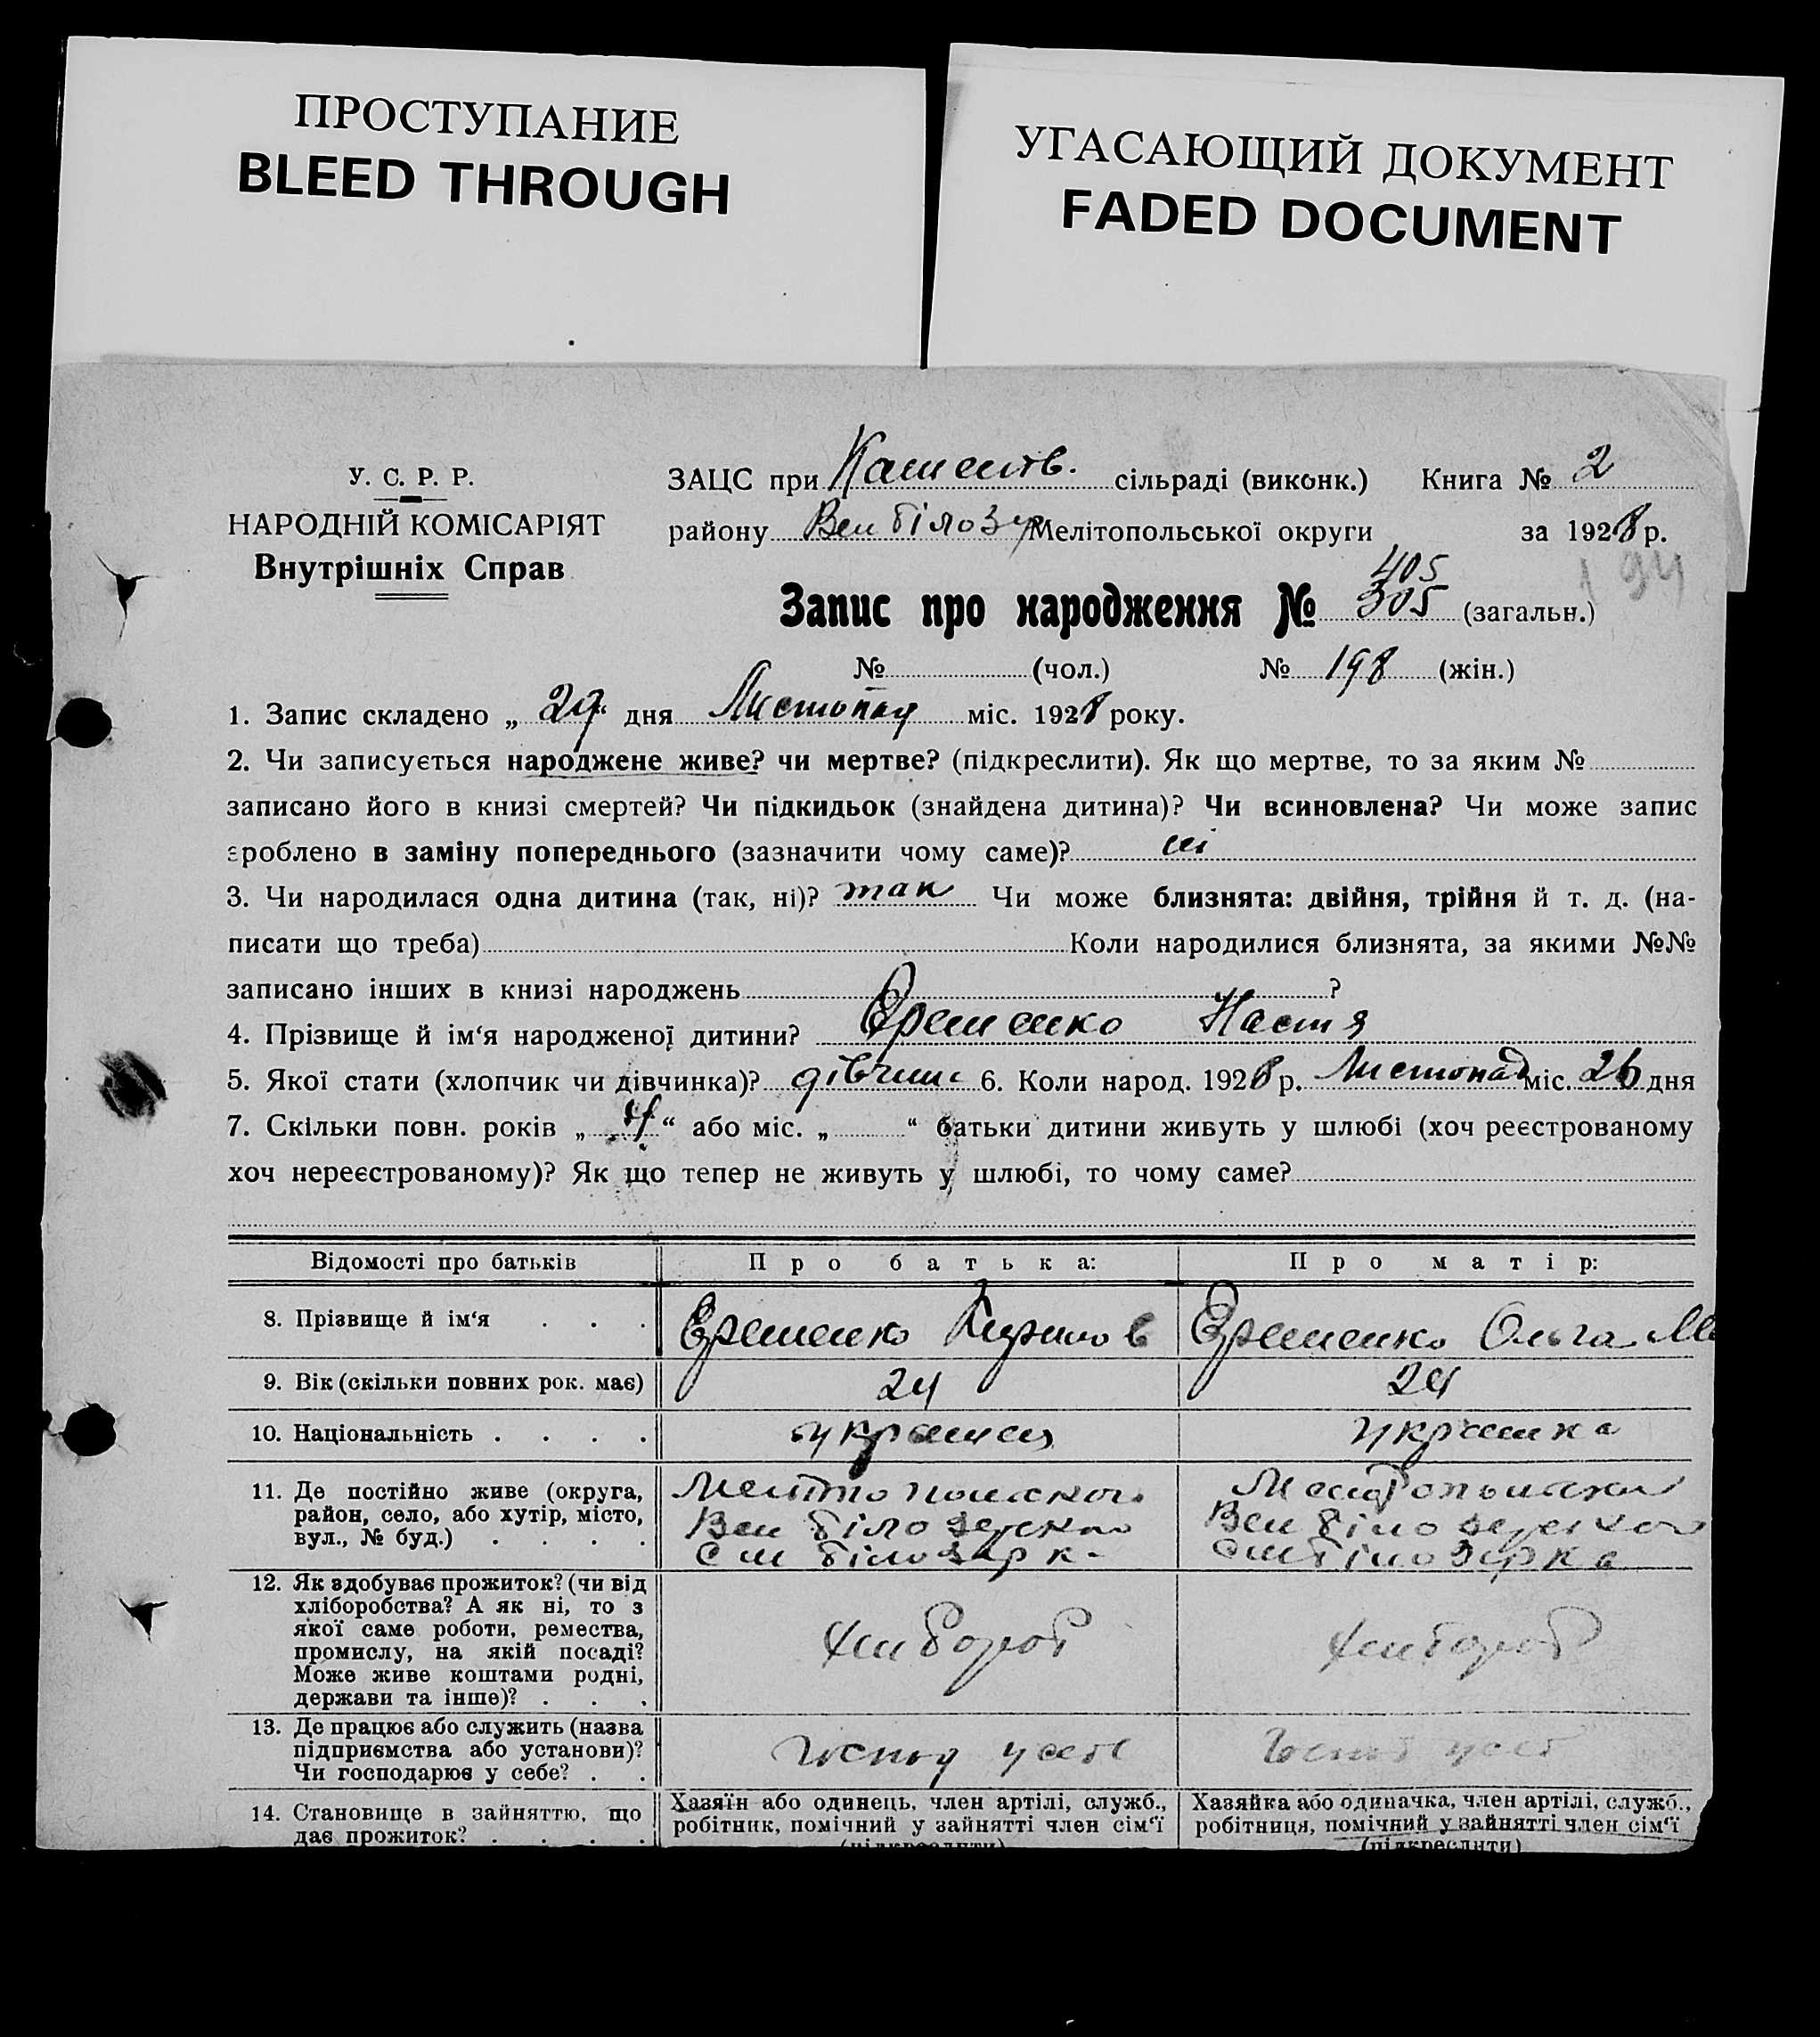 ПРОСТУПАНИЕ
BLEED THROUGH
УГАСАЮЩИЙ ДОКУМЕНТ
FADED DOCUMENT
У. С. Р. Р.
НАРОДНІЙ КОМІСАРІЯТ
Внутрішніх Справ
ЗАЦС при сільраді (виконк.) Книга № 2
району Вел Білозер Мелітопольської округи за 1928 р.
194
405
Запис про народження № 305 (загальн.)
№ (чол.) № 198 (жін.)
1. Запис складено „ 29 “ дня Листопад міс. 1928 року.
2. Чи записується народжене живе? чи мертве? (підкреслити). Як що мертве, то за яким №
записано його в книзі смертей? Чи підкидьок (знайдена дитина)? Чи всиновлена? Чи може запис
зроблено в заміну попереднього (зазначити чому саме)? ні
3. Чи народилася одна дитина (так, ні)? так Чи може близнята: двійня, трійня й т. д. (на-
писати що треба) Коли народилися близнята, за якими №№
записано інших в книзі народжень ?
4. Прізвище й ім‘я народженої дитини? Єременко Настя
5. Якої стати (хлопчик чи дівчинка)? дівчин 6. Коли народ. 1928 р. Листопад міс. 26 дня
7. Скільки повн. років „ 4 “ або міс. „ “ батьки дитини живуть у шлюбі (хоч реєстрованому
хоч нереєстрованому)? Як що тепер не живуть у шлюбі, то чому саме?
Відомості про батьків Про батька: Про матір:
8. Прізвище й ім‘я . . . Єременко Кирило в Єременко Ольга М
9. Вік (скільки повних рок. має) 24 24
10. Національність . . . . українець українка
11. Де постійно живе (округа, район, село, або хутір, місто, вул., № буд.) . . . .
Мелітопольской
Вел Білозерской
Сл Білозерк
Мелітопольской
Вел Білозерской
Сл Білозерка
12. Як здобуває прожиток? (чи від
хліборобства? А як ні, то з
якої саме роботи, ремества,
промислу, на якій посаді?
Може живе коштами родні,
держави та інше)? . . .
хлібороб хлібороб
13. Де працює або служить (назва
підприємства або установи)?
Чи господарює у себе? . .
господ у себе господ у себ
14. Становище в зайняттю, що
дає прожиток? . . . .
Хазяїн або одинець, член артілі, служб.,
робітник, помічний у зайнятті член сім‘ї
(підкреслити)
Хазяйка або одиначка, член артілі, служб.,
робітниця, помічний у зайнятті член сім‘ї
(підкреслити)